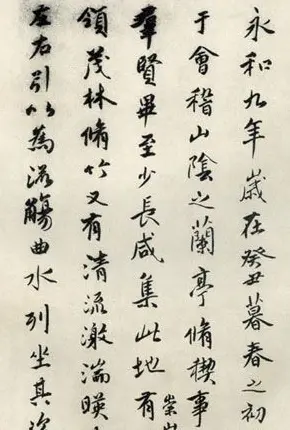 永和九年歲在癸丑暮春之初
于會稽山陰之蘭亭脩稧事
羣賢畢至少長咸集此地有
崇山
領茂林脩竹又有清流激湍暎
左右引以為流觴曲水列坐其次